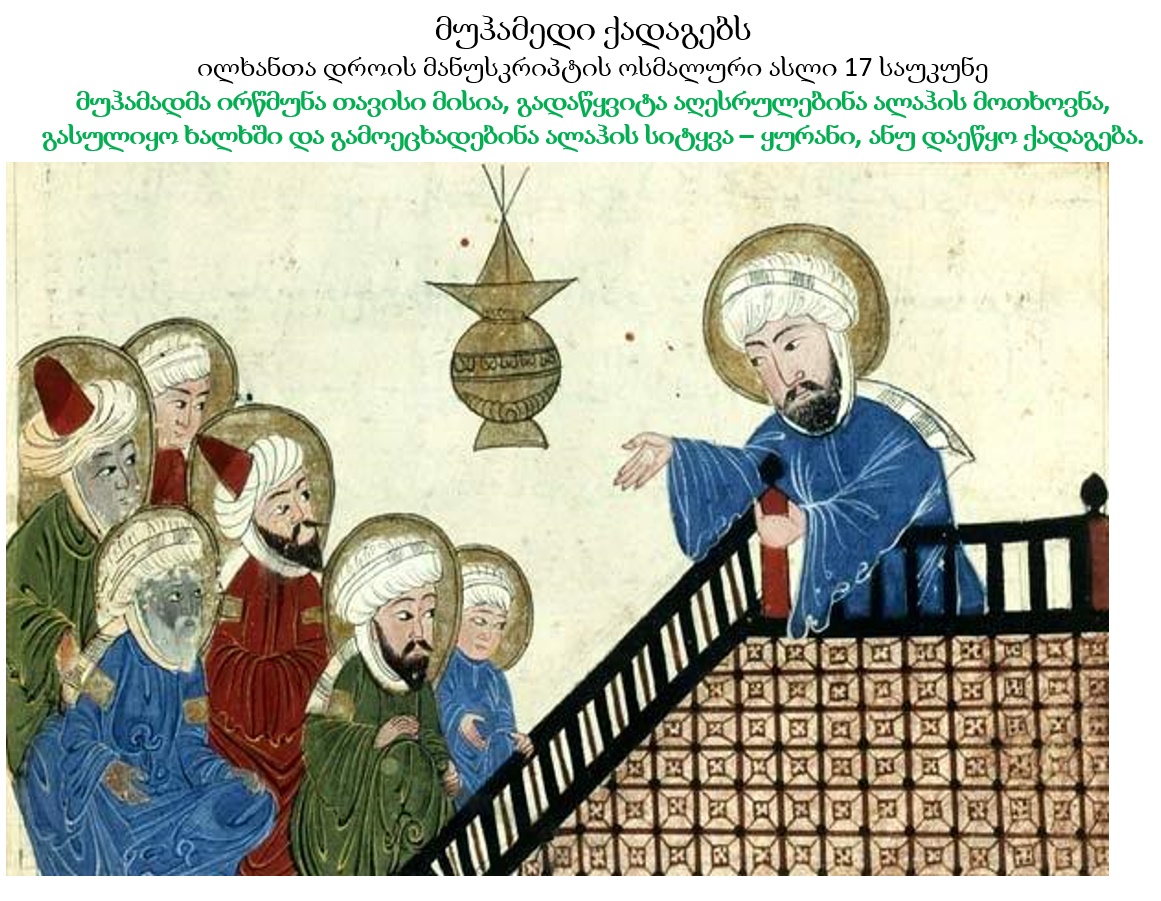 მუჰამედი ქადაგებს
ილხანთა დროის მანუსკრიპტის ოსმალური ასლი 17 საუკუნე
მუჰამადმა ირწმუნა თავისი მისია, გადაწყვიტა აღესრულებინა ალაჰის მოთხოვნა,
გასულიყო ხალხში და გამოეცხადებინა ალაჰის სიტყვა – ყურანი, ანუ დაეწყო ქადაგება.